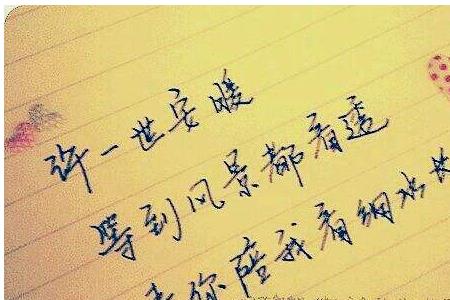 许一世安暖
等到风景都看透
你陪我看细水